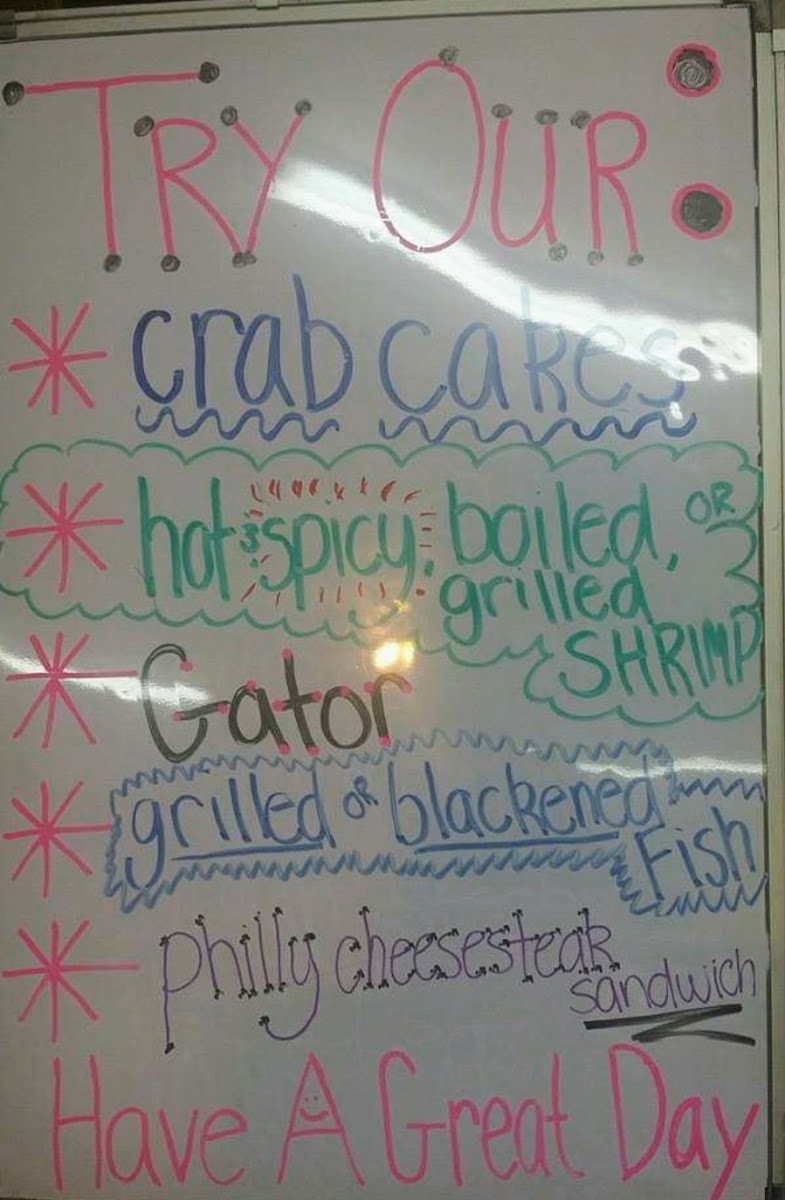 TRY OUR:
* crab cakes
* hot & spicy, boiled, OR
grilled
SHRIMP
* Gator
* grilled OR blackened
Fish
* philly cheesesteak
sandwich
Have A Great Day